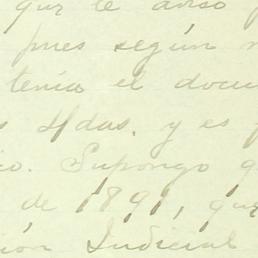 que te aviso
pues según
tenía el docu
s 4das. y es
co. Supongo q
de 1891, que
ión Judicial